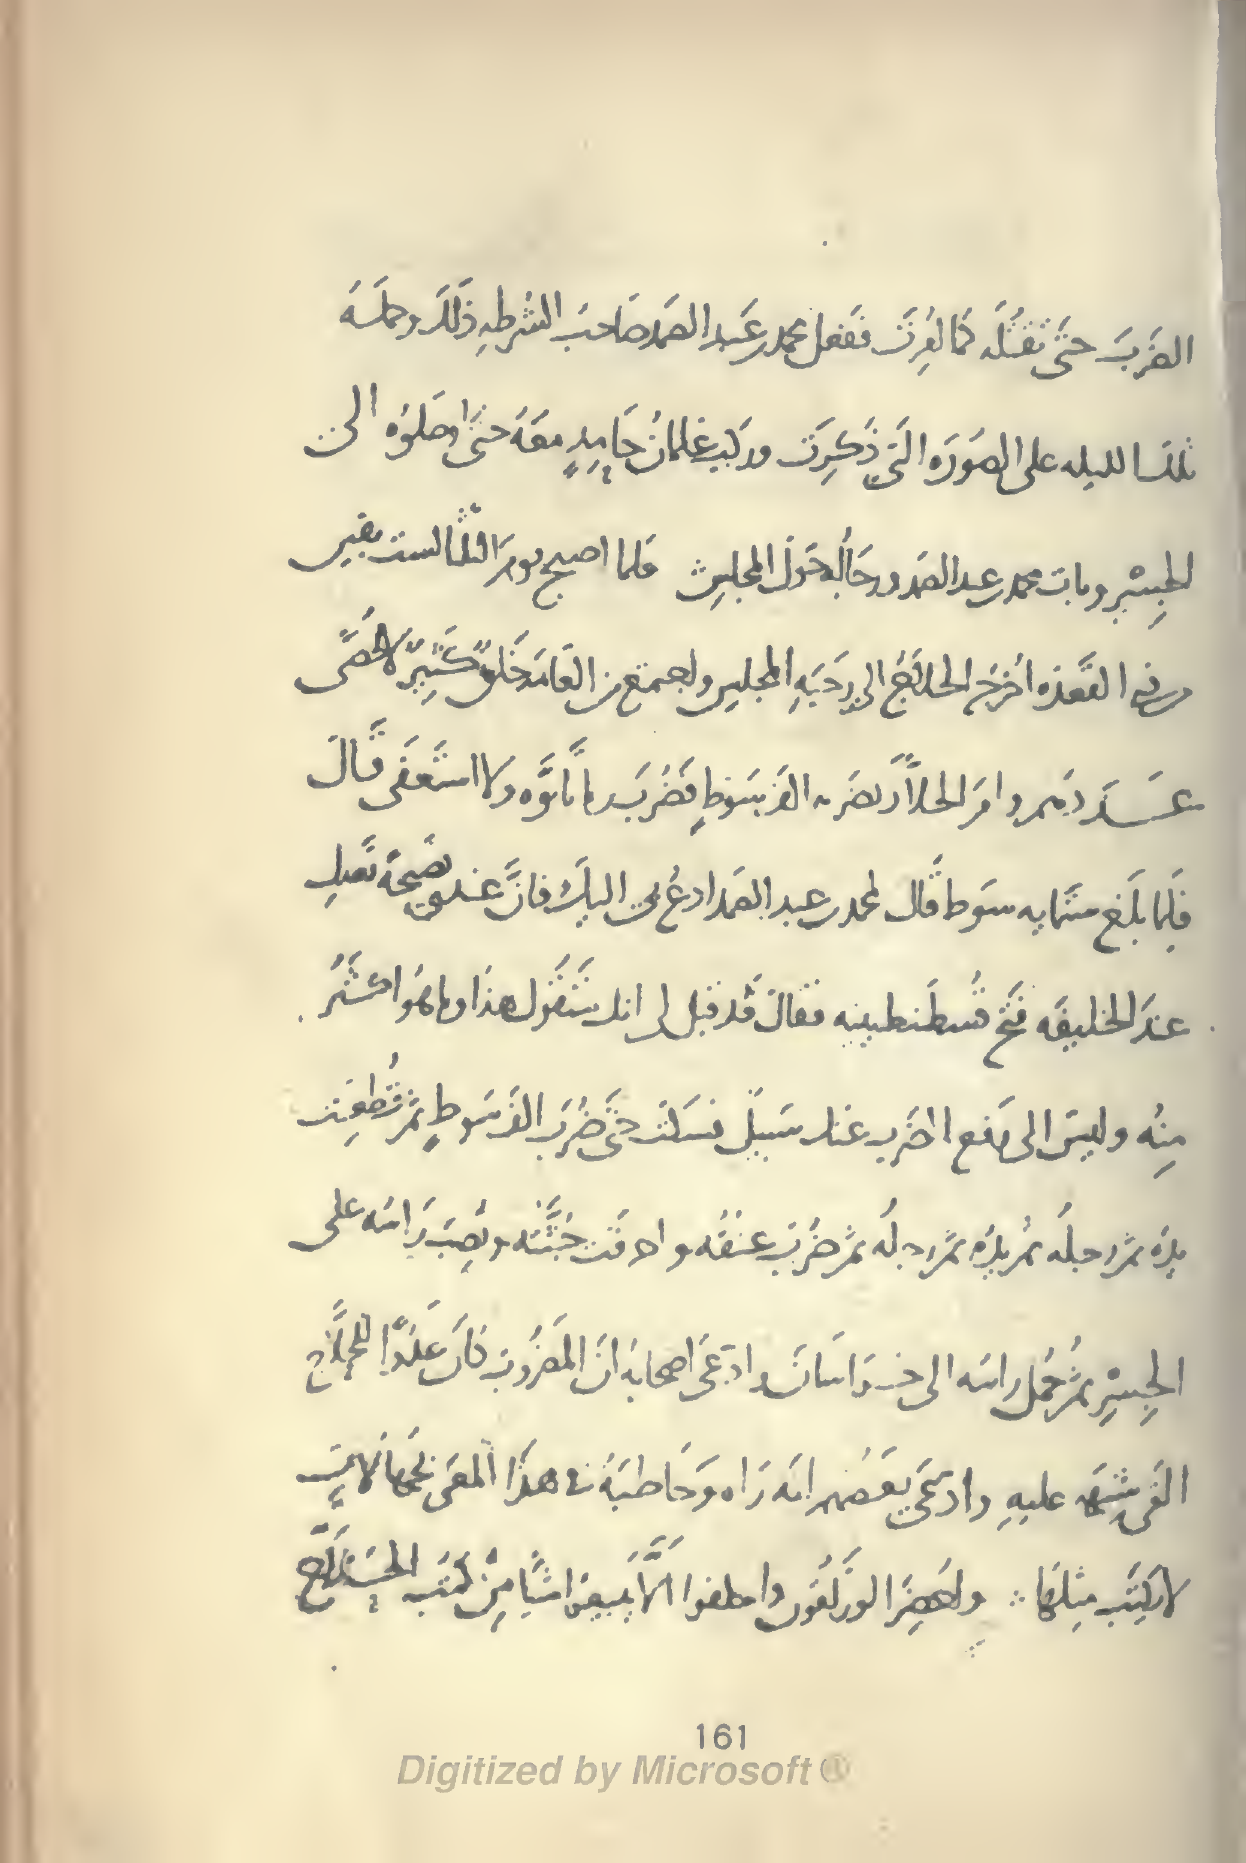 الضَرْبَ حتَّى تقتُلَه كما لعُرِتَ ففعل محمد بن عَبد الصَمد صَاحبَ الشرطهِ ذَلَكَ وحمله
تلك الليله على الصُورَه التَى ذُكِرَت وركب غلمانُ حَامِدٍ معَهُ حتَّى اوصَلوُه الى
الجِسْرِ وبات محمد بن عبد الصَمد ورجَالُه حَولَ المجلِسِ فلما اصبح يومَ الثلثا لست بقين
من ذى القَعده أُخرج الحلاجُ الى رَحَبَهِ المجلِسِ واجتمع من العَامَه خَلقٌ كَثِيرٌ لا يُحصَى
عَددهم وامَرَ الجلادَ بضَربه الفَ سَوطٍ فضُربَ وما تَاوَّه ولا استَعفَى قَالَ
فلمِا بلَغ ستَّمايه سَوط قَال لمحمد بن عبد الصَمد ادعُ بى اليكَ فانَّ عندى نَصيحَةً تَعدل
عندَ الخليفَه فَتح قُسطَنطينيه فقالَ قَد قيل لى انك ستَقُول هذا وما هُوَ اكثَرُ
مِنُه وليسَ الى رفع الضَرب عَنك سَبيلٌ فسكت حتَّى ضُرِبَ الفَ سَوطٍ ثمَّ قُطعَت
يدَه ثمَّ رجلُه ثمَّ يدُه ثمَّ رجلُه ثمَّ ضُرِبَ عنقُه واحرقَت جُثَّتُه ونُصِبَ رَاسَه على
الجِسْرِ ثمَّ حُمل راسَه الى خراسَان وادّعَى اصحابُه انَّ المَضرُوبَ كانَ عَدُوًا للحلَّاج
القَى شِبهه عليهِ وادعَى بعَضُهم انَه رَاه وَخاطبَهُ فى هذَا المعَنى
لا يكتَب مثلَها ∴ واُحضِرَ الورَّاقُون واحلفوا الَّا يبيعوُا شَيًا مِنْ كتب الحَلاَّج
161
Digitized by Microsoft ®